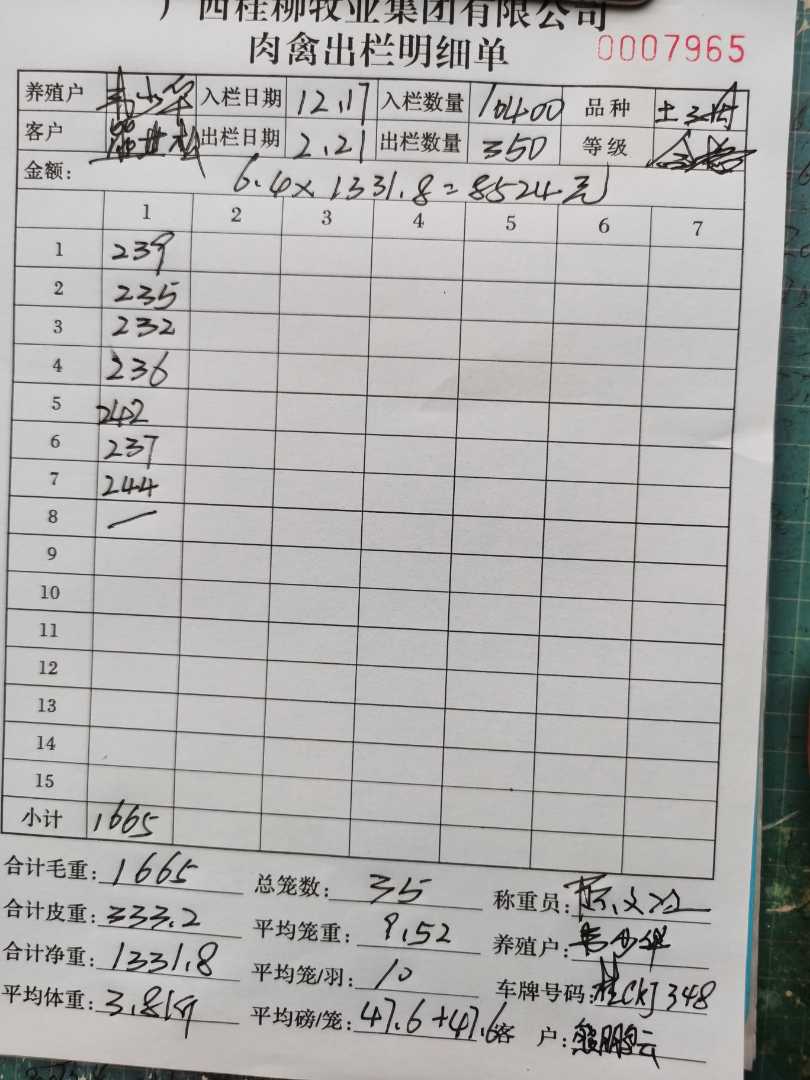 广西桂柳牧业集团有限公司
肉禽出栏明细单 0007965
养殖户 入栏日期 12.17 入栏数量 10400 品种 土2
客户 出栏日期 2.21 出栏数量 350 等级
金额: 6.4×1331.8=8524元
1 2 3 4 5 6 7
1 239
2 235
3 232
4 236
5 242
6 237
7 244
8 —
9
10
11
12
13
14
15
小计 1665
合计毛重: 1665 总笼数: 35 称重员:
合计皮重: 333.2 平均笼重: 9.52 养殖户:
合计净重: 1331.8 平均笼/羽: 10 车牌号码: 桂CKJ348
平均体重: 3.8 平均磅/笼: 47.6+47.6 客户: 熊鹏云